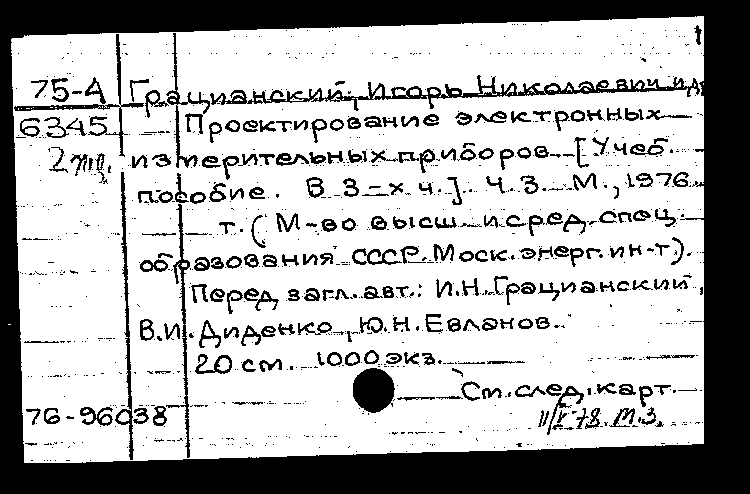 75-4 Грацианский, Игорь Николаевич и др
6345 Проектирование электронных
2 экз. измерительных приборов [Учеб.
пособие. В 3-х ч.]. Ч.3. М., 1976.
т. (М-во высш. и сред. спец.
образования СССР. Моск. энерг. ин-т).
Перед загл. авт.: И.Н. Грацианский,
В.И. Диденко, Ю.Н. Евланов.
20 см. 1000 экз.
См. след. карт.
76-96038 11/X-78. М.З.